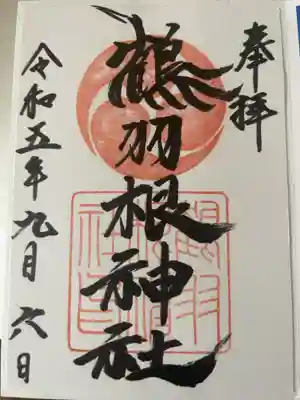 奉拝
鶴羽根神社
令和五年九月六日